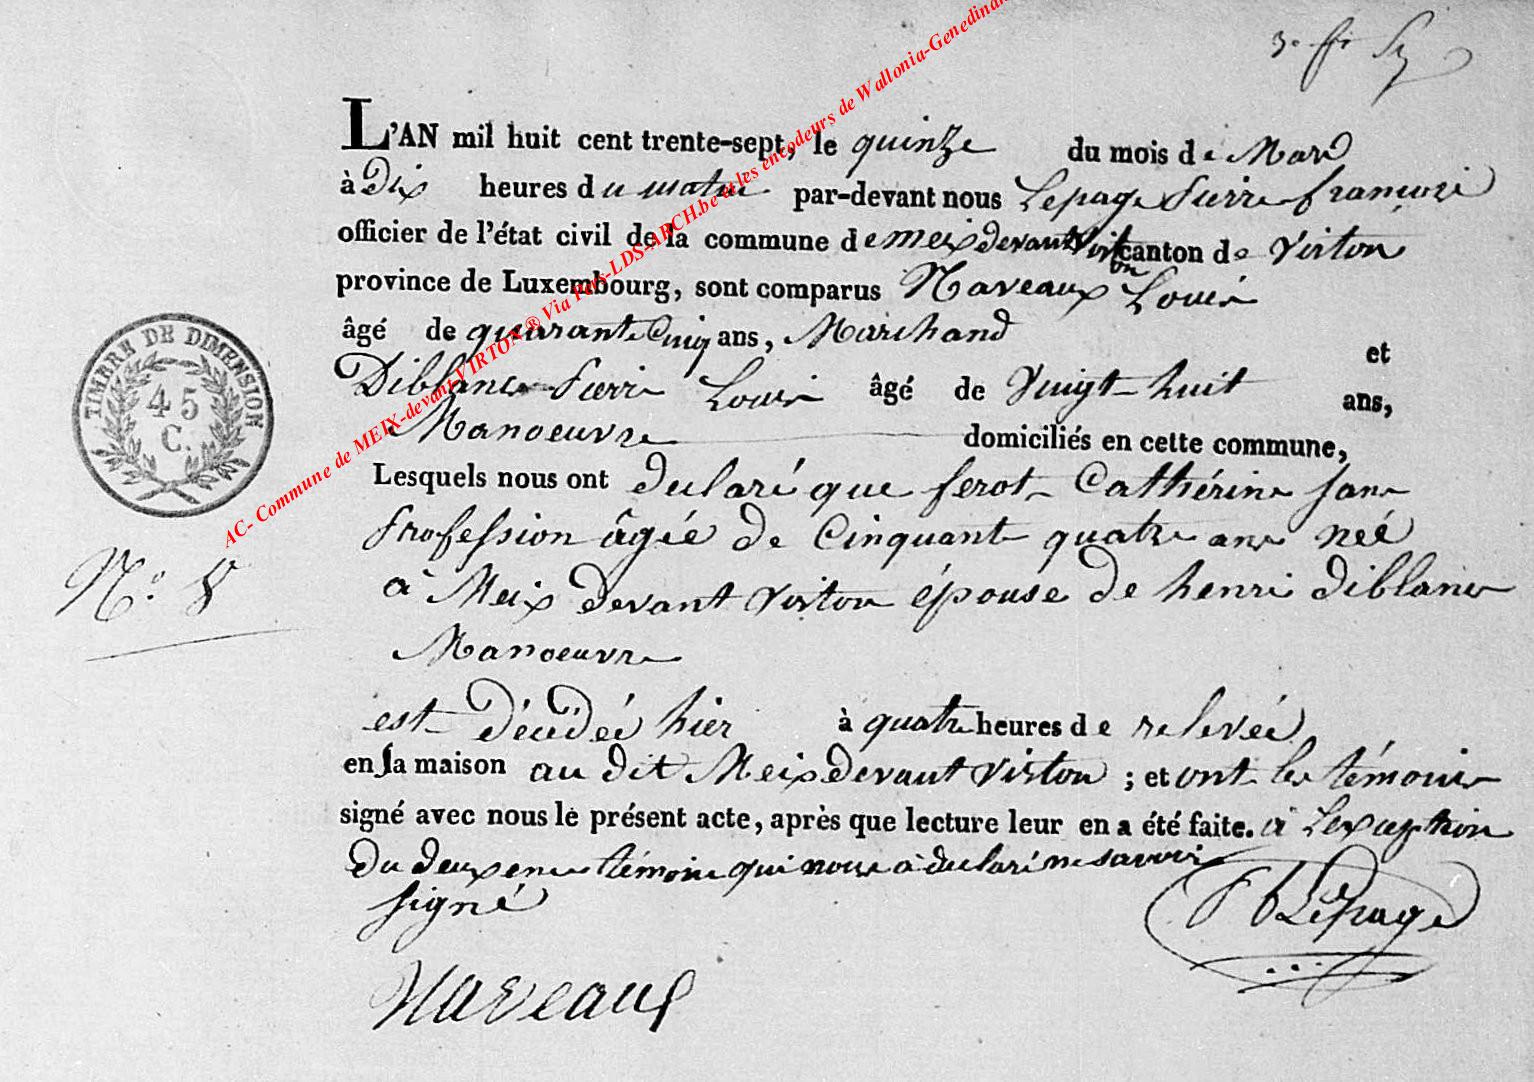 3e ff
L'AN mil huit cent trente-sept, le quinze du mois de Mars
à Dix heures du matin par-devant nous Lepage Pierre françois
officier de l'état civil de la commune de meix devant Virton canton de Virton
province de Luxembourg, sont comparus Naveaux Louis
âgé de quarante Cinq ans, Marchand et
Diblanc Pierre Louis âgé de Vingt huit ans,
Manoeuvre domiciliés en cette commune,
Lesquels nous ont declaré que ferot Cathérine sans
Profession âgée de Cinquante quatre ans neé
à Meix devant Virton épouse de henri Diblanc
Manoeuvre
est décédeé hier à quatre heures de relevée
en sa maison au dit Meix devant Virton ; et ont les témoins
signé avec nous le présent acte, après que lecture leur en a été faite. à Lexception
du deuxeme témoin qui nous à declaré ne savoir
signé
PF Lepage
Naveaux
TIMBRE DE DIMENSION
45
C.
N.° 8
AC- Commune de MEIX-devant-VIRTON ® Via Pers-LDS-ARCH.be et les encodeurs de Wallonia-Genedinan